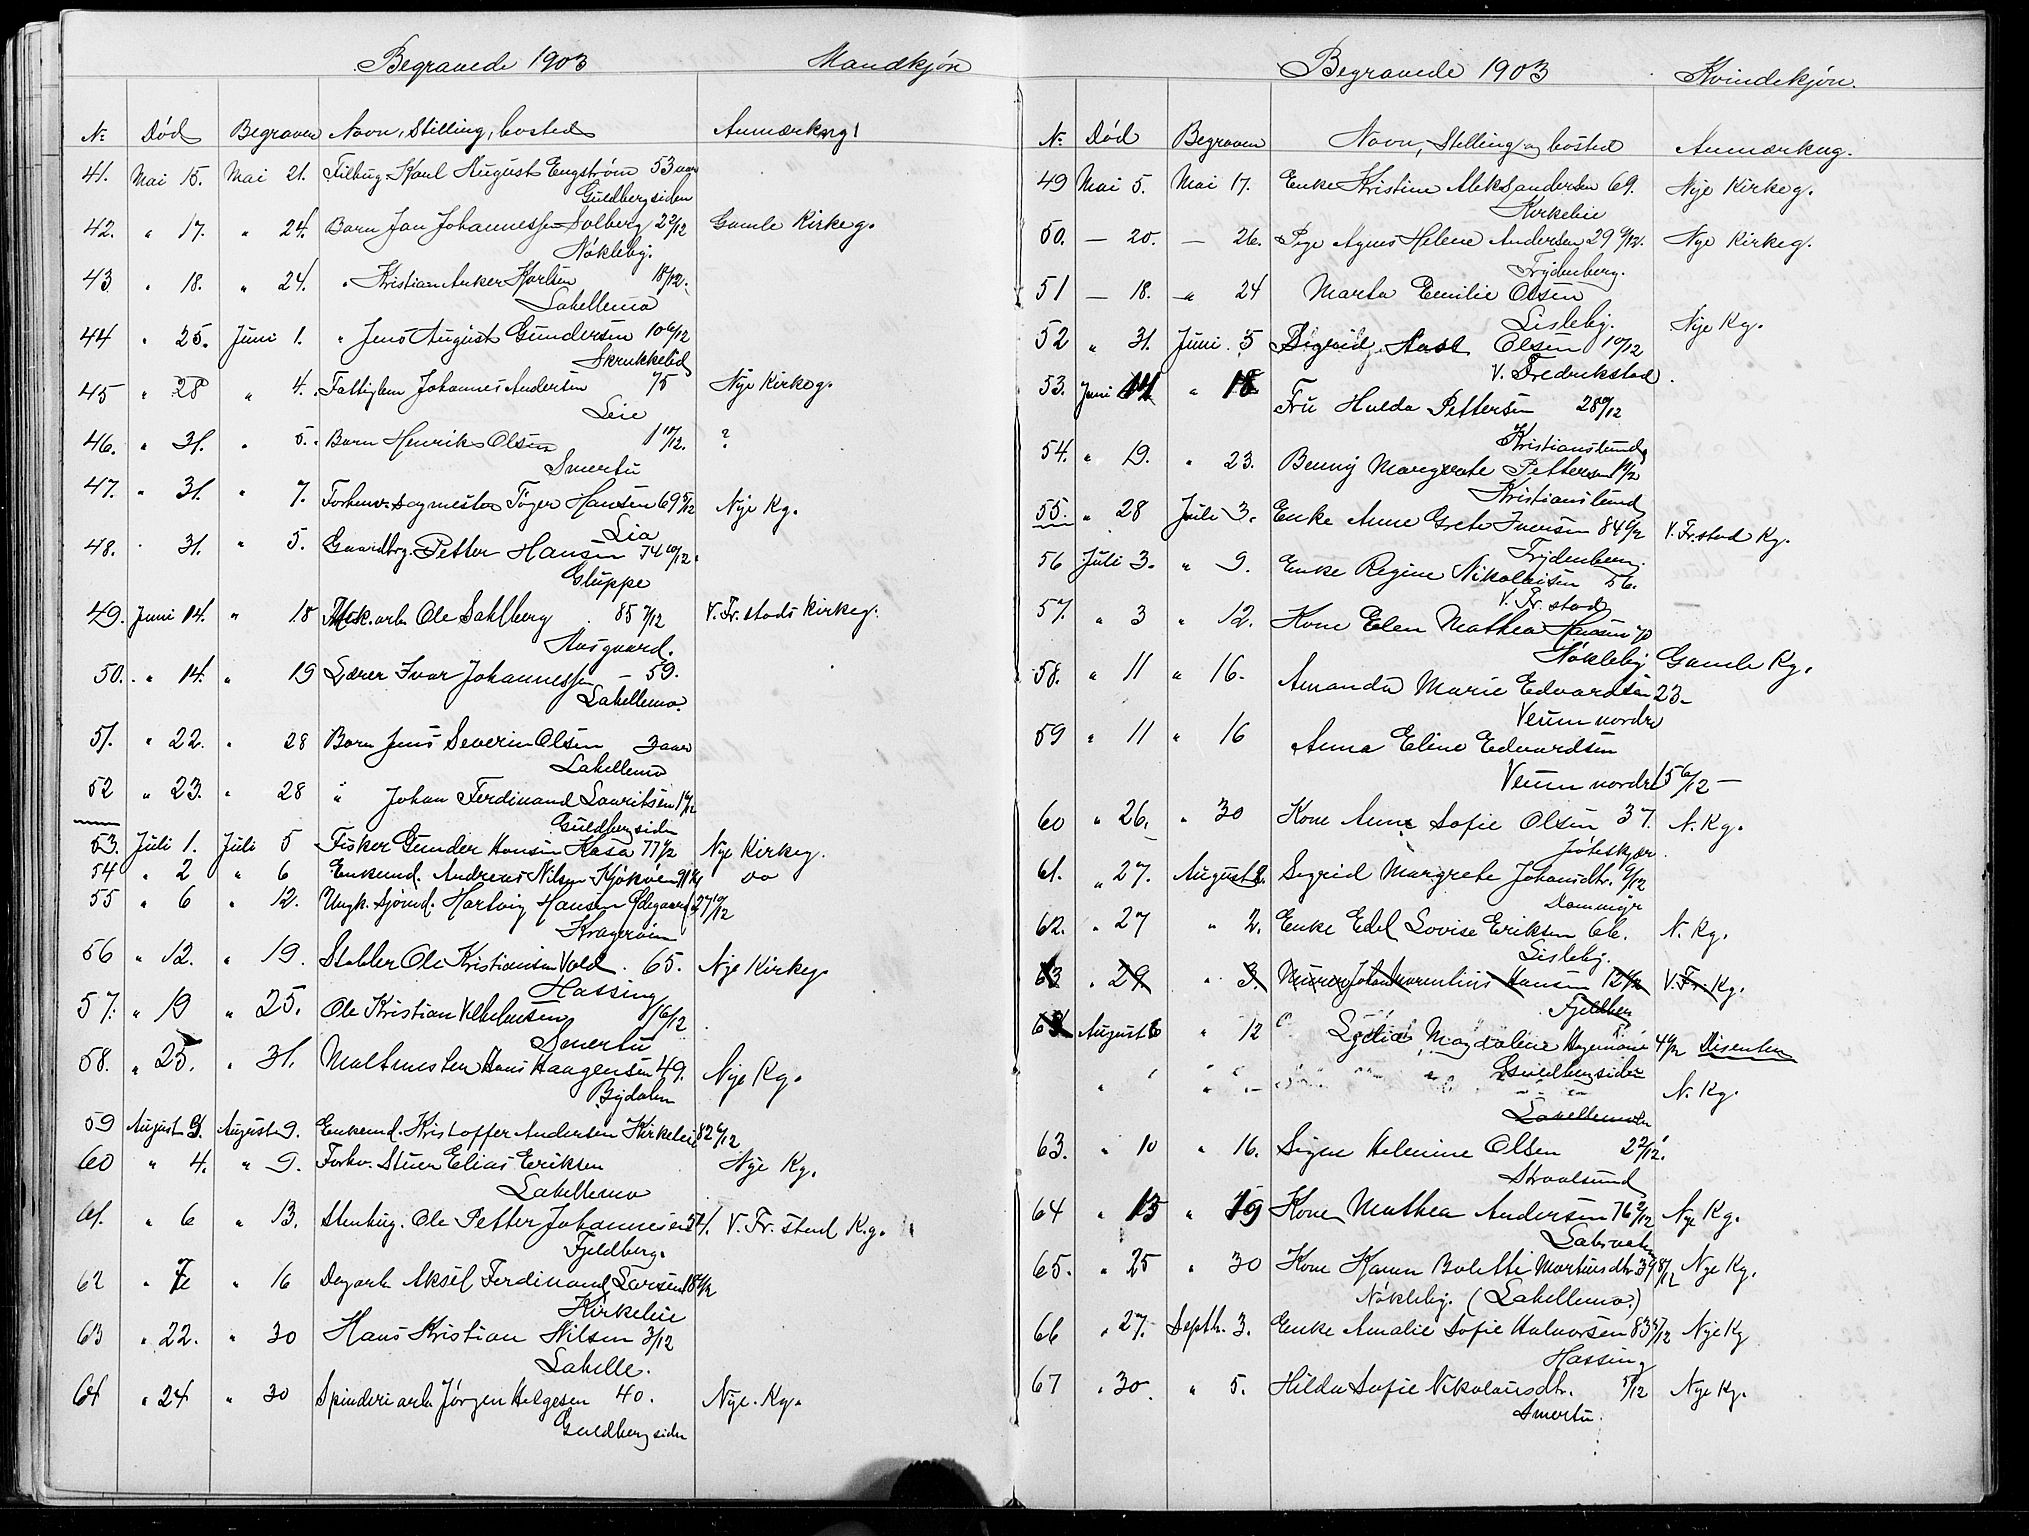 Begravede 1903 Mandkjøn
No Død Begraven Navn, Stilling, bosted Anmærkng!
41. Mai 15. Mai 21. Karl August Engström 53 aar
Guldbergsiden
42. " 17. " 24. Barn Jan Johannessen Solberg 2 2/12 Gamle Kirkeg.
Nøkleby.
43 " 18. " 24. " Kristian Anker Karlsen 18/12.
Lahellemo
44 " 25. Juni 1. " Jens August Gundersen 10 6/12
Skrukkelid
45 " 28 " 4. Fattiglem Johannes Andersen 75 Nye Kirkeg.
Leie
46. " 31. " 5. Barn Henrik Olsen 1 10/12. ?
Smertu
47. " 31. " 7. Forhenv. sagmester Tøger Hansen 69 5/12 Nye Kg.
Lia
48. " 31. " 5. Gaardbrg. Petter Hansen 74 10/12.
Gluppe
49. Juni 14. " 18 arb. Ole Sahlberg 85 7/12 V. Fr.stads Kirkeg.
Aasgaard.
50. " 14. " 19 Lærer Ivar Johannessen – 59.
Lahellemo.
51. " 22. " 28 Barn Jens Severin Olsen 3 aar
Lahellemo
52 " 23. " 28 " Johan Ferdinand Lauritsen
Guldbergsiden
53. Juli 1. Juli 5 Fisker Gunder Hansen Kasa Nye Kirkeg.
54 " 2 " 6 Enkemd. Andreas Nilsen Kjøkøen
55 " 6 " 12. Ungk. sjømd. Hartvig Hansen Ødegaard 27 10/12
Kragerøen
56 " 12. " 19. Stabler Ole Kristiansen Vold. 65. Nye Kirkeg.
Hassing
57. " 19 " 25. Ole Kristian Vilhelmsen 8/12
Smertu
58. " 25. " 31. Hans Haagensen 49. Nye Kg.
Bydalen
59 August 3. August 9. Enkemd. Kristoffer Andersen Kirkeleie 82 6/12
60 " 4. " 9. Forhv. Stuer Elias Eriksen Nye Kg.
Lahellemo
61. " 6 " 13. Stenhug. Ole Petter Johannesen 54. V. Fr.stad Kg.
Fjeldberg.
62 " " 16 Dagarb Aksel Ferdinand Larsen
Kirkeleie
63 " 22. " 30 Hans Kristian Nilsen 3/12
Lahelle.
64 " 24. " 30 Spinderiarb. Jørgen Helgesen 40. Nye. Kg.
Guldbergsiden
Begravede 1903 Kvindekjøn.
No Død Begraven Navn, Stilling og bosted Anmærkng.
49 Mai 5. Mai 17. Enke Kristine Aleksandersen 69. Nye Kirkeg.
Kirkeleie
50. – 20. – 26. Pige Agnes Helene Andersen 29 Nye Kirkeg.
Trydenberg.
51 – 18. –"– 24 Marta Emilie Olsen
Lisleby. Nye Kg.
52 " 31. Juni 5 Olsen 10/12
V. Fredrikstad.
53. Juni 14 " 18 Fru Hulda Pettersen 28
Kristianslund
54. " 19. " 23. Benny Margrete Pettersen
Kristianslund
55. " 28 Juli 3. Enke Anne Grete Iversen 84 V. Fr.stad Kg.
Trydenberg.
56 Juli 3. " 9. Enke Regine Nikolaisen 56.
V. Fr.stad
57. " 3 " 12. Kone Elen Mathea Hansen 70
Nøkleby Gamle Kg.
58. " 11 " 16. Amanda Marie Edvardsen 23–
Veum nordre
59 " 11 " 16 Anna Eline Edvardsen
Veum nordre 15 6/12 –
60 " 26. " 30 Kone Anne Sofie Olsen 37. N. Kg.
61. " 27. August 2. Sigrid Margrete Johansdtr. 9/12
Dammyr
62. " 27 " 2. Enke Edel Lovise Eriksen 66. N. Kg.
Lisleby.
63 " 29 " 3. Murer Johan Hansen V. Fr. Kg.
Fjeldberg
August 6 " 12 Lydia Magdalene Disenter
Guldbergsiden
N. Kg.
Lahellemoen
63. " 10 " 16. Signe Helenine Olsen 2 2/12.
Straalsund
64 " 13 " 19 Kone Mathea Andersen 76 2/12 Nye Kg.
65. " 25 " 30 Kone Karen Boletti Martinsdtr. 39 8/12 Nye Kg.
Nøkleby. (Lahellemo.)
66 " 27. Septb. 3. Enke Amalie Sofie Halvorsen 83 5/12 Nye Kg
Hassing
67 " 30. " 5. Hilda Sofie Nikolaisdtr. 5/12 Nye Kg.
Smertu.